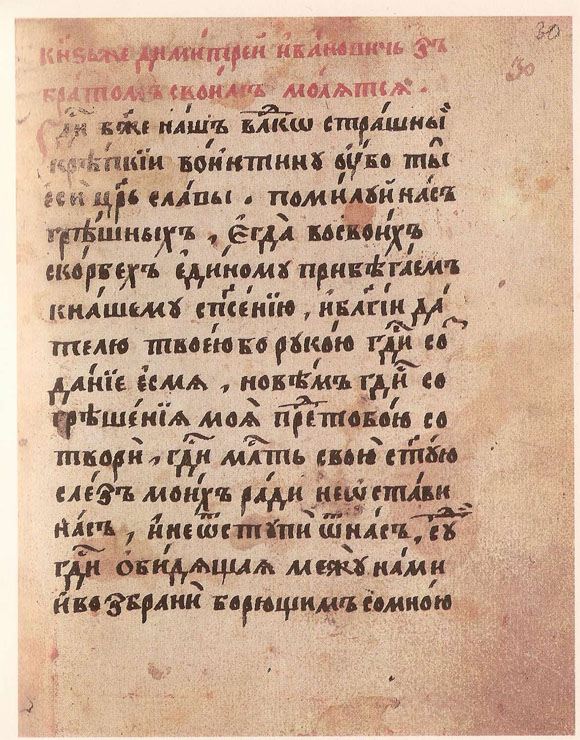 30
кн҃ѕь же дими́трей ива́новичь ꙁъ
бра́томъ свои́мъ мо́лятся .
30
Гд҃и бж҃е на́шъ влⷣко стра́шный
крѣ́пкїи во́йнтину ꙋ҆́бо ты̀
есѝ цр҃ь сла́вы . поми́луй на́съ
грѣ́шныхъ , єгда̀ восвои́хъ
ско́рбехъ е҆ди́ному прибѣга́емъ
кна́шему сп҃се́нїю , и҆блг҃їи да́
телю твое́ю бо руко́ю гд҃и со
да́нїе е҆смя̀ , новѣ́мъ гд҃и со
грѣше́нїя моя̀ преⷣтобо́ю со
творѝ , гд҃и млⷭ҇ть свою̀ ст҃у́ю
сле́ꙁъ мои́хъ ра́ди неѡста́ви
на́съ , и҆неѿступѝ ѿна́съ , суⷣи
гд҃и ѻби́дящая ме́жꙋ на́ми
и҆воꙁбранѝ борющимъ со мно́ю